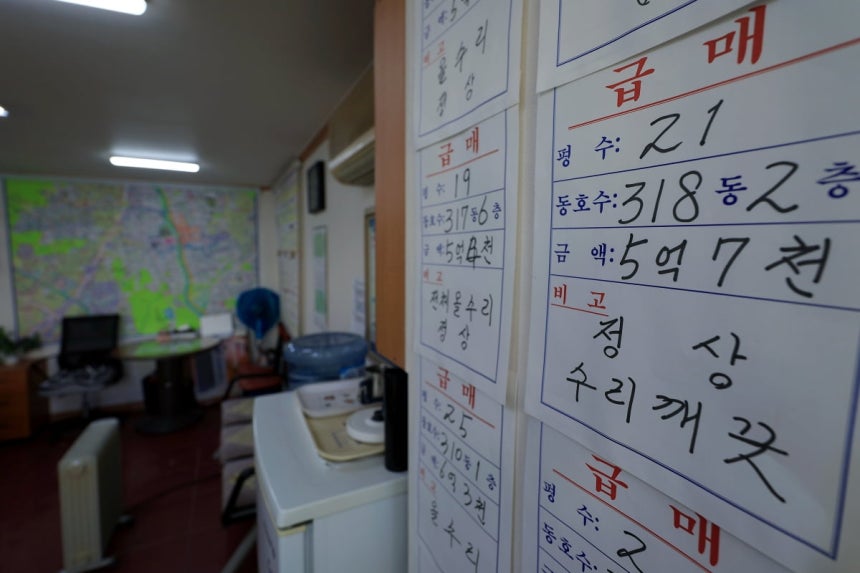 올수리
정상
급매
평수: 19
동호수: 317동 6층
금액: 5억 4천
비고
전체올수리
정상
급매
평수: 25
동호수: 310동 1층
금액: 6억 3천
비고
올수리
급매
평수: 21
동호수: 318동 2층
금액: 5억 7천
비고
정상
수리깨끗
급매
평수: 2
동호수: